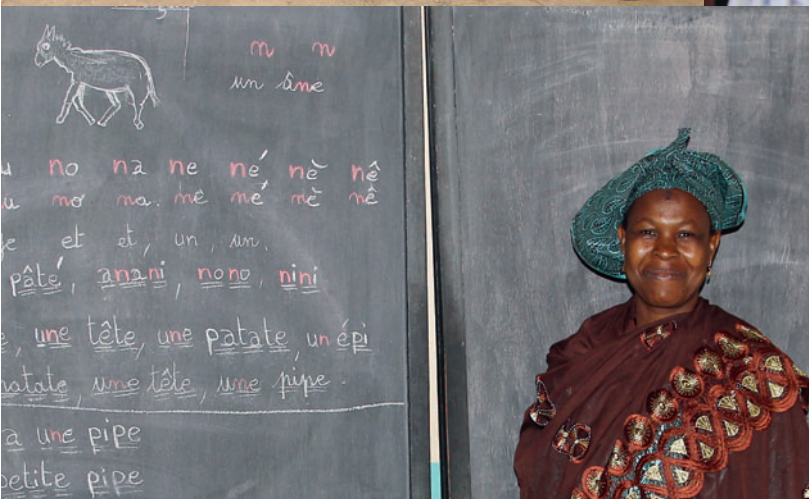 n n
un âne
no na ne né nè nê
no na. ne né nè nê
et et, un, un.
pâté, anani, nono, nini
une tête, une patate, un épi
patate, une tête, une pipe.
a une pipe
petite pipe